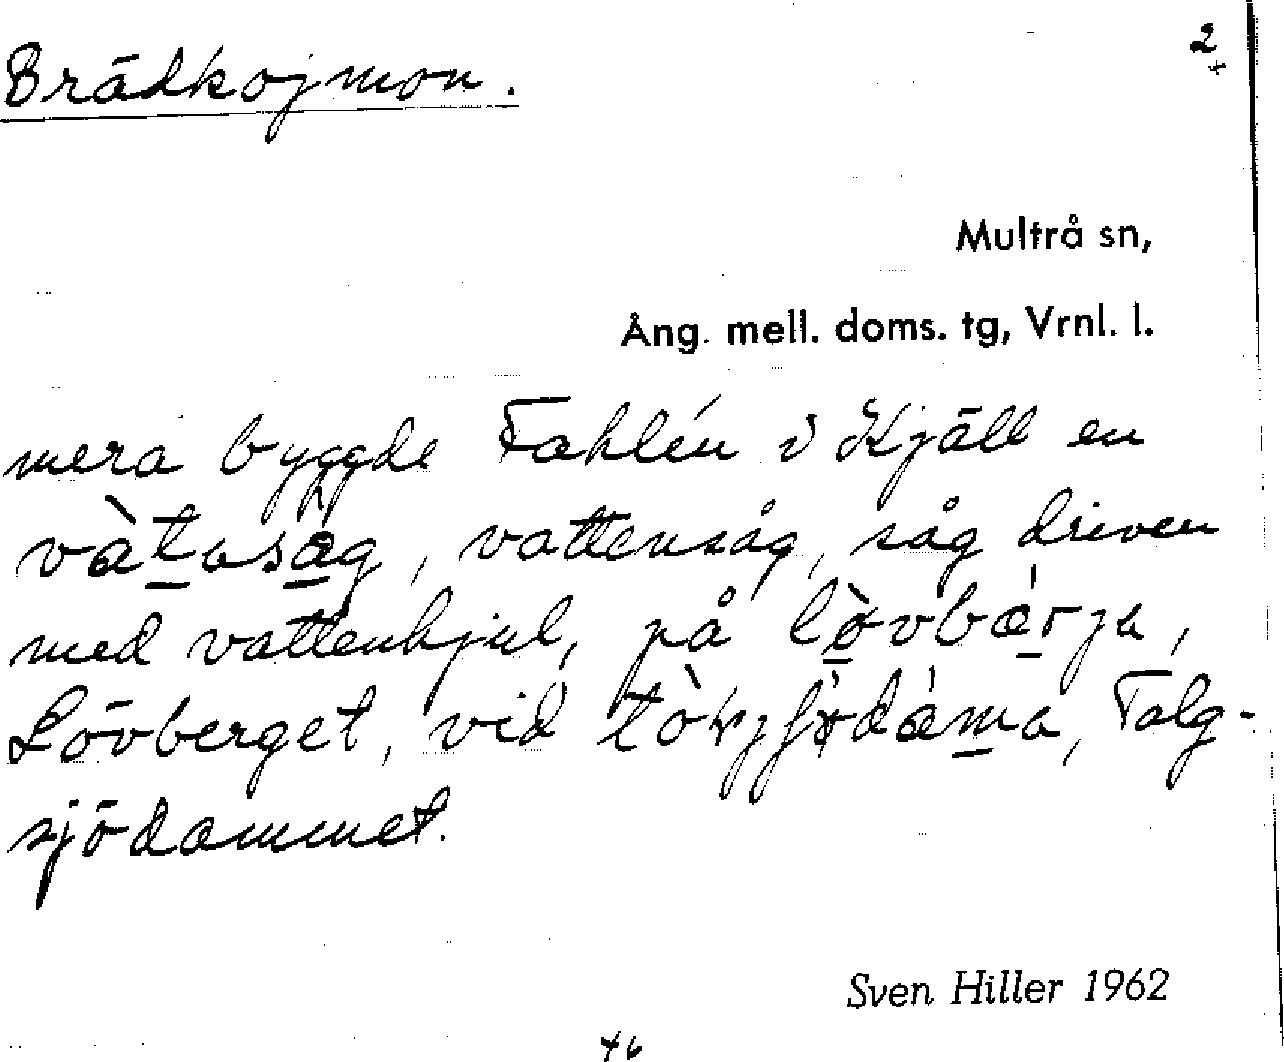 2
Brädkojmon.
Multrå sn,
Ång. mell. doms. tg, Vrnl. l.
mera byggde Fahlén i Kjäll en
vattensåg, såg driven
med vattenhjul, på
Lövberget, vid Talg-
sjödammet.
Sven Hiller 1962
46